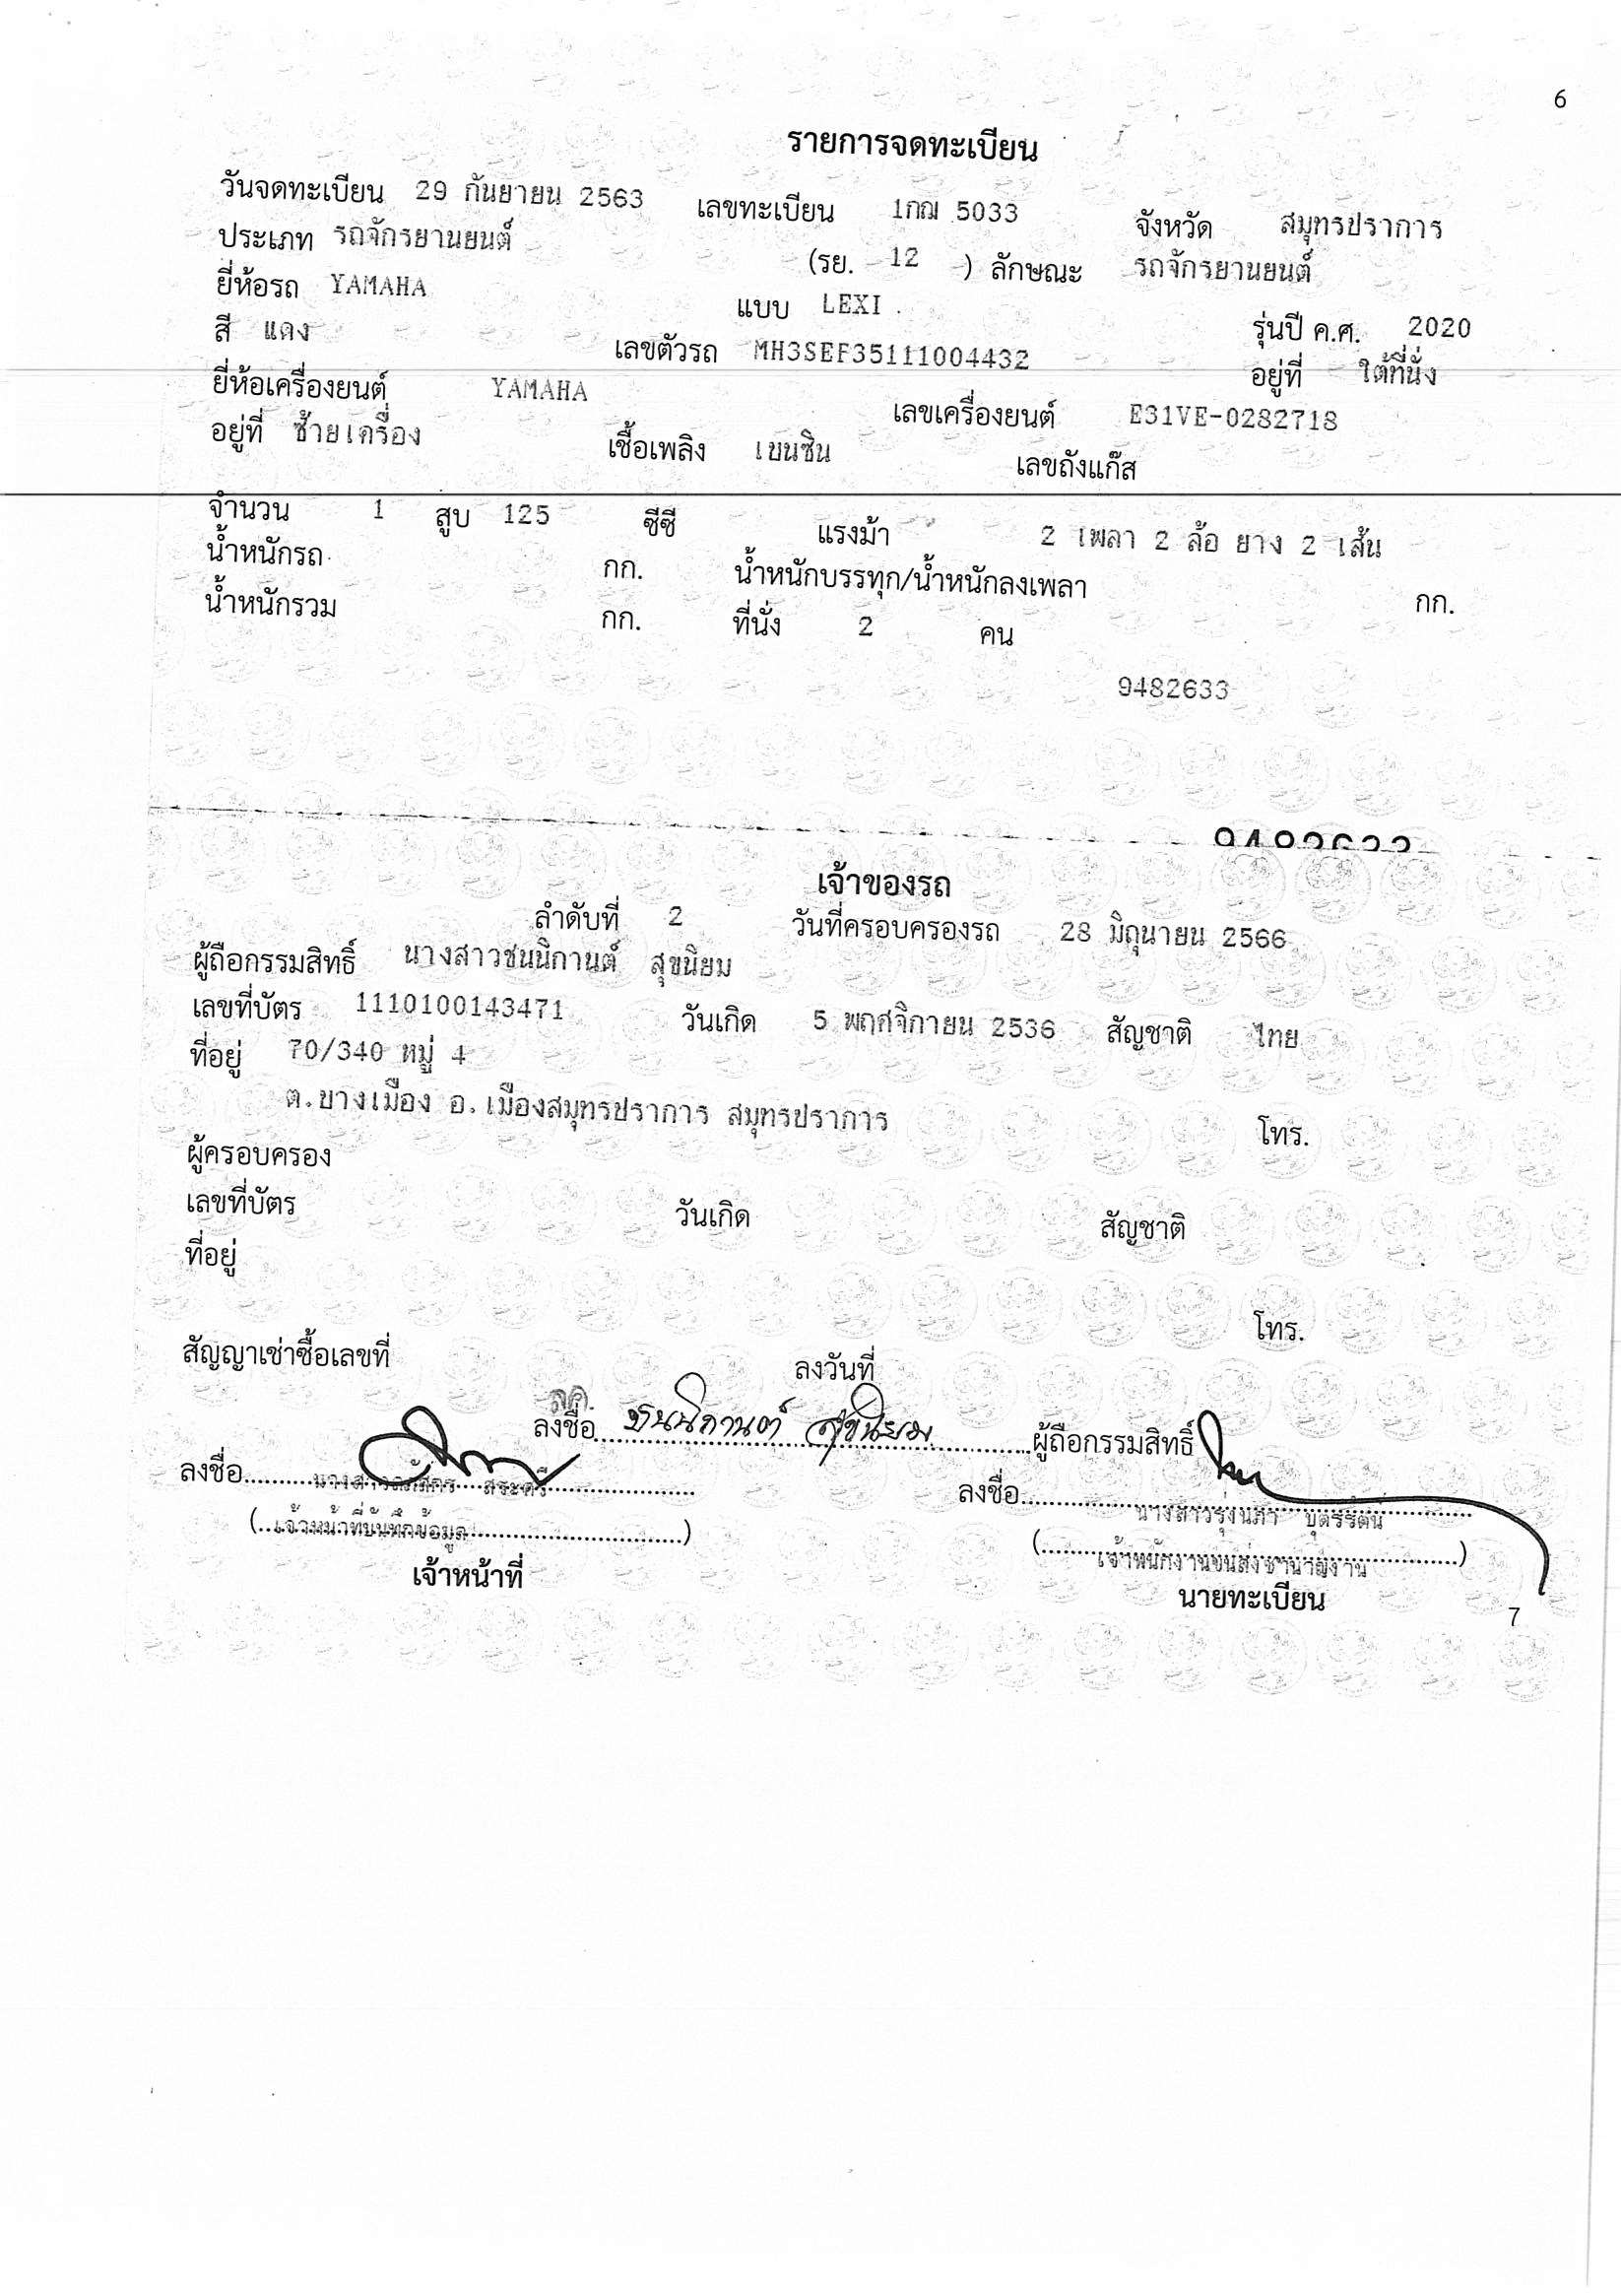 6
รายการจดทะเบียน
วันจดทะเบียน 29 กันยายน 2563 เลขทะเบียน 1กฌ 5033 จังหวัด สมุทรปราการ
ประเภท รถจักรยานยนต์ (รย. 12 ) ลักษณะ รถจักรยานยนต์
ยี่ห้อรถ YAMAHA แบบ LEXI รุ่นปี ค.ศ. 2020
สี แดง เลขตัวรถ MH3SEF35111004432 อยู่ที่ ใต้ที่นั่ง
ยี่ห้อเครื่องยนต์ YAMAHA เลขเครื่องยนต์ E31VE-0282718
อยู่ที่ ซ้ายเครื่อง เชื้อเพลิง เบนซิน เลขถังแก๊ส
จำนวน 1 สูบ 125 ซีซี แรงม้า 2 เพลา 2 ล้อ ยาง 2 เส้น
น้ำหนักรถ กก. น้ำหนักบรรทุก/น้ำหนักลงเพลา กก.
น้ำหนักรวม กก. ที่นั่ง 2 คน
9482633
9482633
เจ้าของรถ
ลำดับที่ 2 วันที่ครอบครองรถ 28 มิถุนายน 2566
ผู้ถือกรรมสิทธิ์ นางสาวชนนิกานต์ สุขนิยม
เลขที่บัตร 1110100143471 วันเกิด 5 พฤศจิกายน 2536 สัญชาติ ไทย
ที่อยู่ 70/340 หมู่ 4
ต.บางเมือง อ.เมืองสมุทรปราการ สมุทรปราการ โทร.
ผู้ครอบครอง
เลขที่บัตร วันเกิด สัญชาติ
ที่อยู่
โทร.
สัญญาเช่าซื้อเลขที่ ลงวันที่
ลงชื่อ ชนนิกานต์ สุขนิยม ผู้ถือกรรมสิทธิ์
ลงชื่อ สระศรี
(เจ้าหน้าที่บันทึกข้อมูล)
เจ้าหน้าที่
ลงชื่อ นางสาวรุ่งนภา บุตรรัตน์
(เจ้าพนักงานขนส่งชำนาญงาน)
นายทะเบียน
7